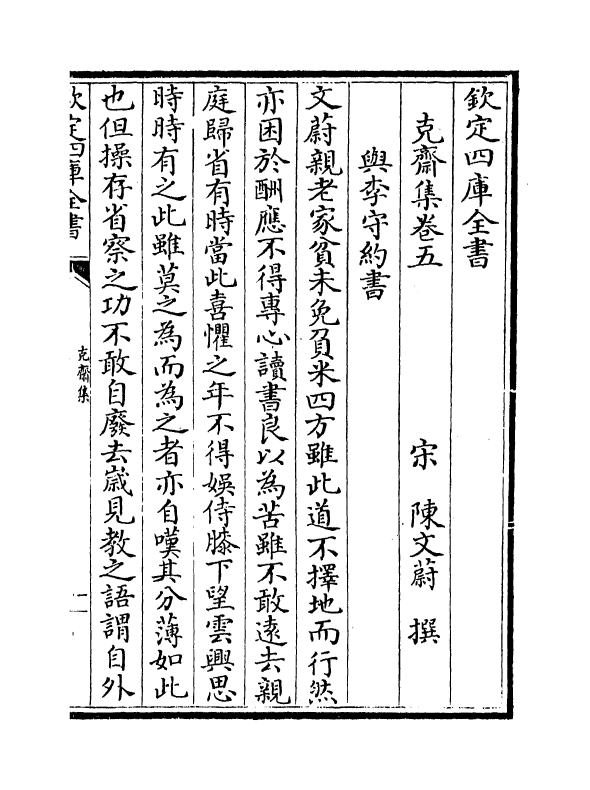 欽定四庫全書
克齋集卷五
宋 陳文蔚 撰
與李守約書
文蔚親老家貧未免負米四方雖此道不擇地而行然
亦困於酬應不得專心讀書良以為苦雖不敢遠去親
庭歸省有時當此喜懼之年不得娛侍膝下望雲興思
時時有之此雖莫之為而為之者亦自嘆其分薄如此
也但操存省察之功不敢自廢去嵗見教之語謂自外
欽定四庫全書
克齋集